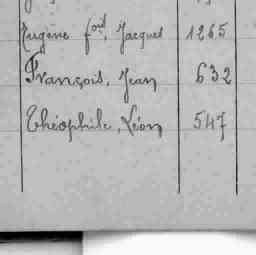 Eugène fois, Jacques 1265
François, Jean 632
Théophile, Léon 547